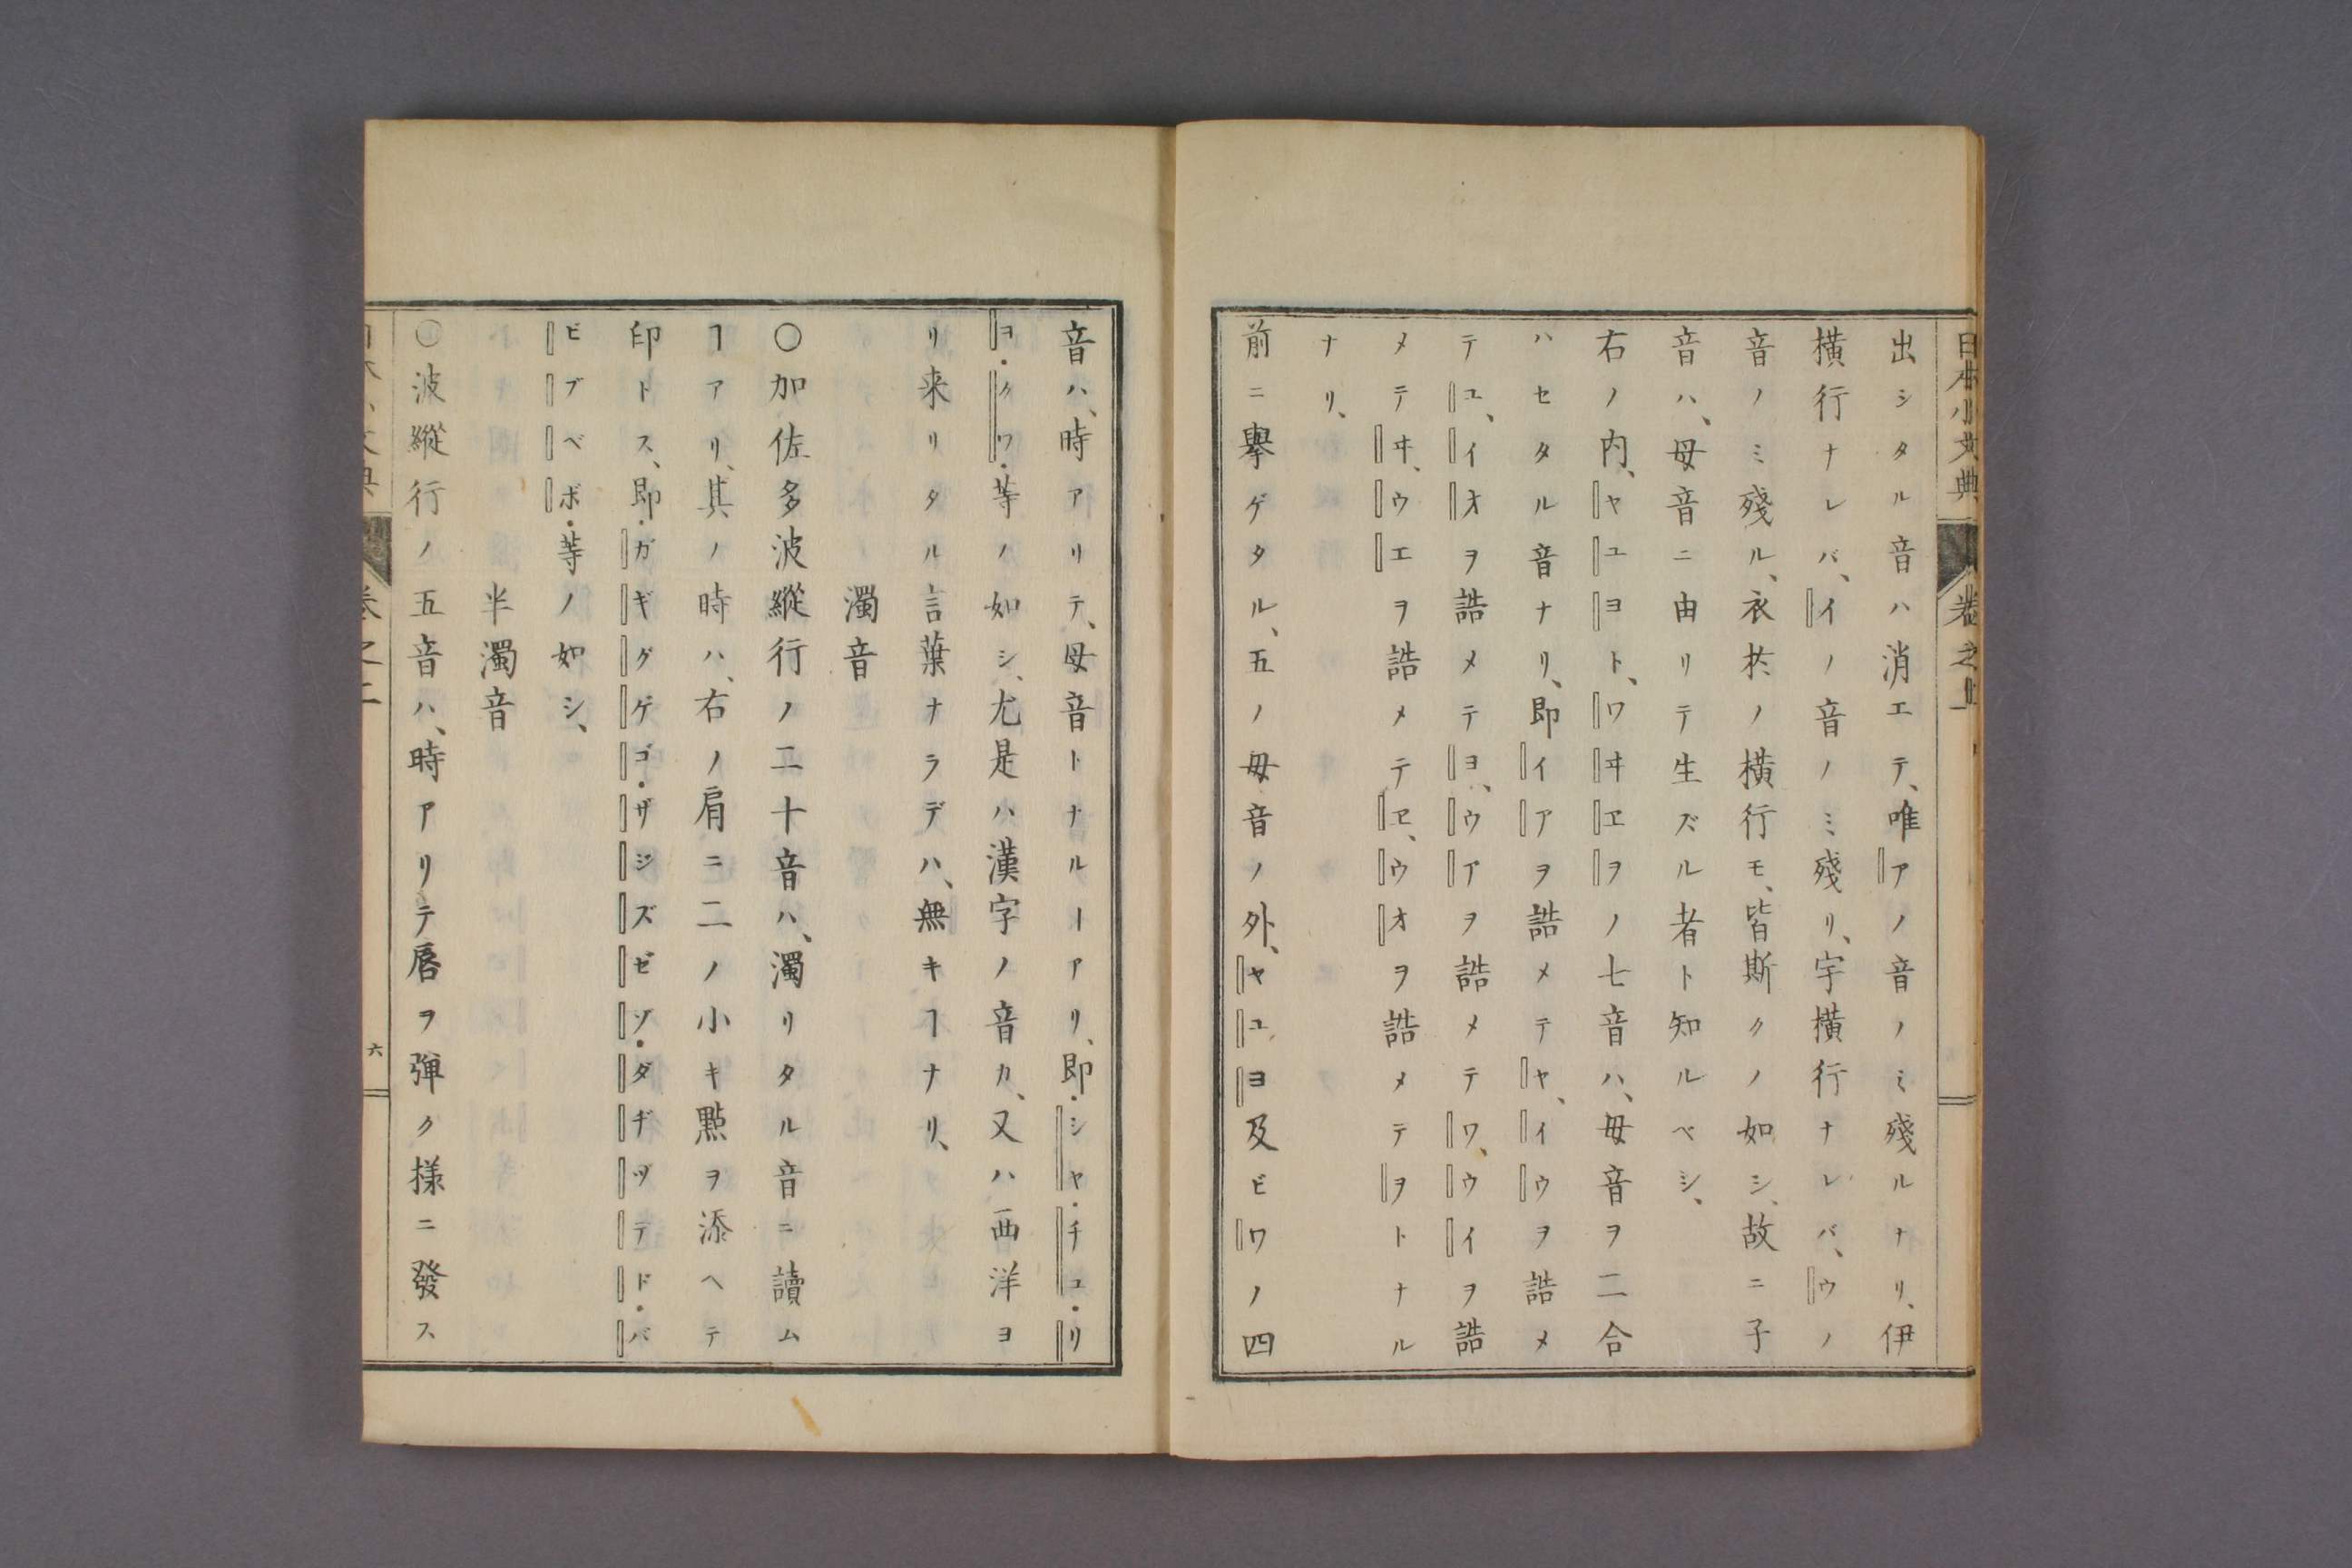 日本小文典 卷之上
出シタル音ハ消エテ、唯アノ音ノミ殘ルナリ、伊
橫行ナレバ、イノ音ノミ殘リ、宇橫行ナレバ、ウノ
音ノミ殘ル、衣於ノ橫行モ、皆斯クノ如シ、故ニ子
音ハ、母音ニ由リテ生ズル者ト知ルベシ、
右ノ內、ヤユヨト、ワヰヱヲノ七音ハ、母音ヲ二合
ハセタル音ナリ、即イアヲ誥メテヤ、イウヲ誥メ
テユ、イオヲ誥メテヨ、ウアヲ誥メテワ、ウイヲ誥
メテヰ、ウエヲ誥メテヱ、ウオヲ誥メテヲトナル
ナリ、
前ニ擧ゲタル、五ノ母音ノ外、ヤユヨ及ビワノ四
音ハ、時アリテ、母音トナルーアリ、即・シヤ・チユ・リ
ヨ・クワ・等ノ如シ、尤是ハ漢字ノ音カ、又ハ西洋ヨ
リ来リタル言葉ナラデハ、無キヿナリ、
濁音
〇加佐多波縱行ノ二十音ハ、濁リタル音ニ讀ム
ヿアリ、其ノ時ハ、右ノ肩ニ二ノ小キ點ヲ添ヘテ
印トス、即・ガギグゲゴ・ザジズゼゾ・ダヂヅデド・バ
ビブベボ・等ノ如シ、
半濁音
〇波縱行ノ五音ハ、時アリテ唇ヲ彈ク樣ニ發ス
六